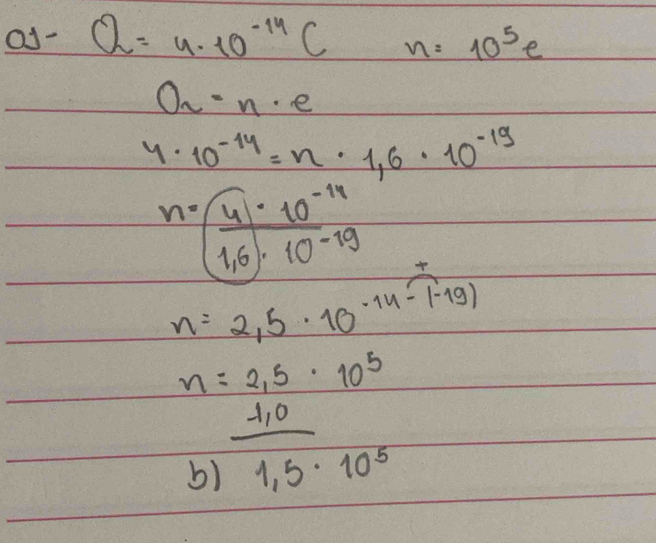 01- Q = 4 · 10⁻¹⁴ C n = 10⁵ e
Q = n · e
4 · 10⁻¹⁴ = n · 1,6 · 10⁻¹⁹
n = 4 · 10⁻¹⁴
1,6 · 10⁻¹⁹
+
n = 2,5 · 10⁻¹⁴⁻⁽⁻¹⁹⁾
n = 2,5 · 10⁵
-1,0
b) 1,5 · 10⁵